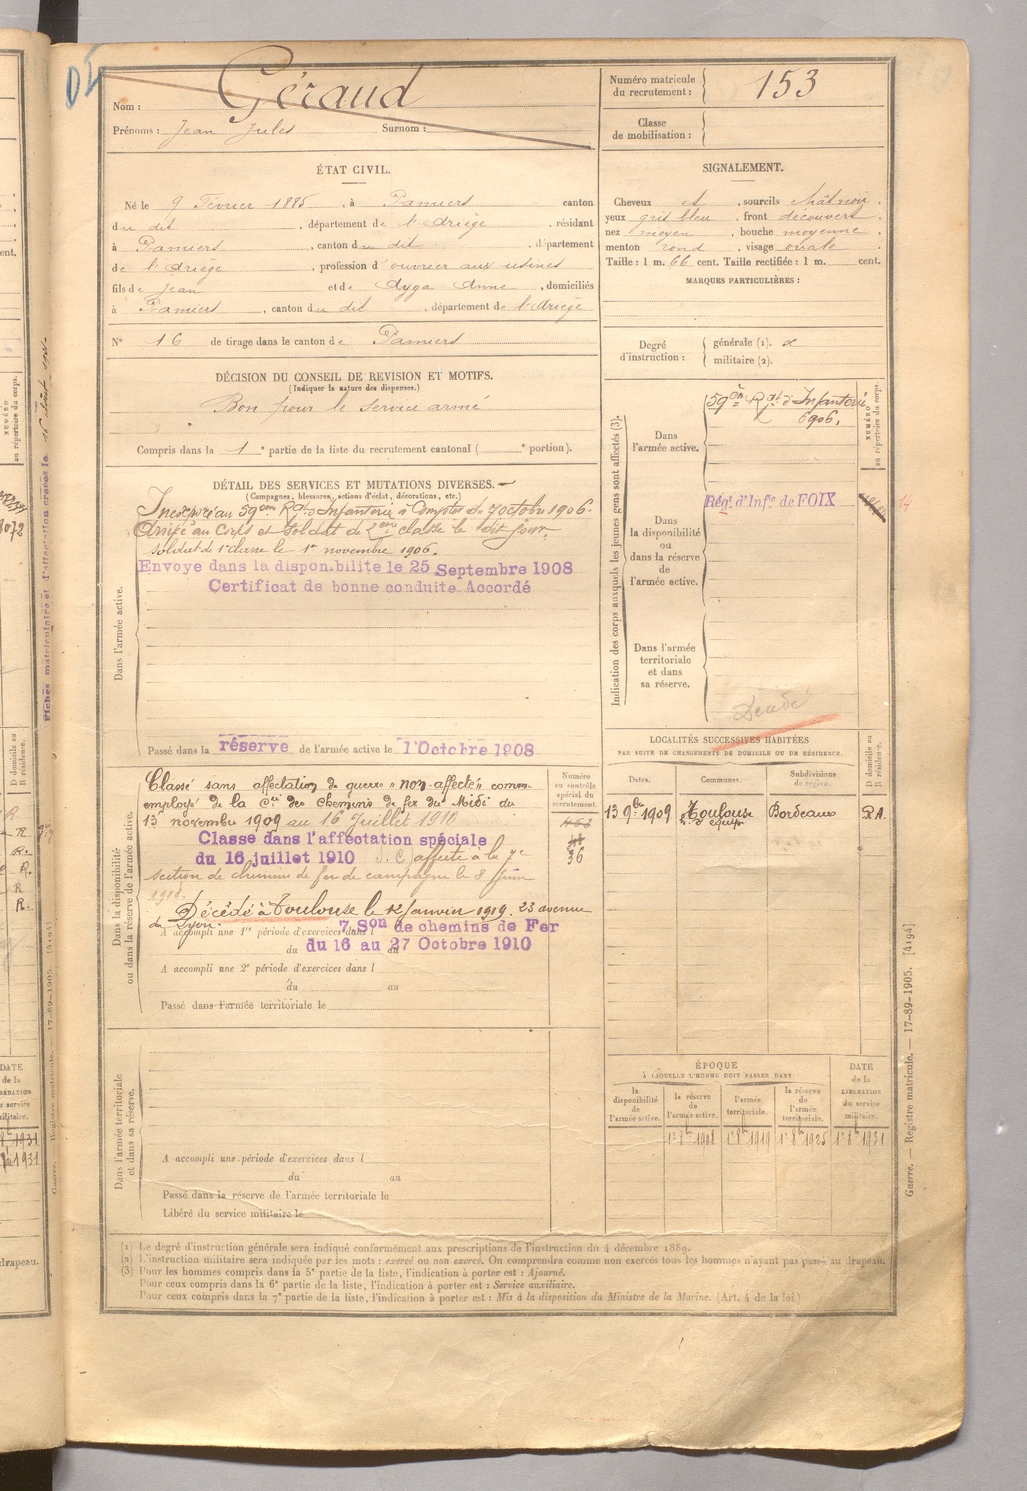 Nom : Géraud
Prénoms : Jean Jules Surnom :
Numéro matricule du recrutement : 153
Classe de mobilisation :
ÉTAT CIVIL.
Né le 9 Février 1885, à Pamiers canton
du dit, département de l'Ariège, résidant
à Pamiers, canton du dit, département
de l'Ariège, profession d'ouvrier aux usines
fils de Jean et de Ayga Anne, domiciliés
à Pamiers, canton du dit, département de l'Ariège
N° 16 de tirage dans le canton de Pamiers
SIGNALEMENT.
Cheveux et, sourcils châtnoir.
yeux gris bleu, front découvert.
nez moyen, bouche moyenne.
menton rond, visage ovale.
Taille : 1 m. 66 cent. Taille rectifiée : 1 m. cent.
MARQUES PARTICULIÈRES :
DÉCISION DU CONSEIL DE REVISION ET MOTIFS.
(Indiquer la nature des dispenses.)
Bon pour le service armé
Compris dans la 1e partie de la liste du recrutement cantonal ( e portion).
Degré d'instruction :
générale (1).
militaire (2).
DÉTAIL DES SERVICES ET MUTATIONS DIVERSES.
(Campagnes, blessures, actions d'éclat, décorations, etc.)
Dans l'armée active.
Incorporé au 59em Rgt Infanterie à Compter du 7 octobre 1906.
Arrivé au Corps et Soldat de 2eme classe le dit jour
soldat de 1e classe le 1er novembre 1906.
Envoye dans la disponibilite le 25 Septembre 1908
Certificat de bonne conduite Accordé
Passé dans la réserve de l'armée active le 1 Octobre 1908
Indication des corps auxquels les jeunes gens sont affectés (3).
NUMÉRO au répertoire du corps.
Dans l'armée active.
59e Rgt d'Infanterie
1906.
Dans la disponibilité ou dans la réserve de l'armée active.
Rég. d'Infie de FOIX
Dans l'armée territoriale et dans sa réserve.
Dans la disponibilité ou dans la réserve de l'armée active.
Numéro au contrôle spécial du recrutement.
Classé sans affectation de guerre "non affecté" comme
employé de la Cie des Chemins de fer du Midi du
13 novembre 1909 au 16 Juillet 1910
Classe dans l'affectation spéciale
du 16 juillet 1910 affecté à la 7e
section de chemins de fer de campagne le 8 Juin
36
Décédé à Toulouse le 12 Janvier 1919. 23 avenue
de Lyon.
A accompli une 1re période d'exercices dans l 7 Son de chemins de Fer
du 16 au 27 Octobre 1910
A accompli une 2e période d'exercices dans l
du au
Passé dans l'armée territoriale le
LOCALITÉS SUCCESSIVES HABITÉES
PAR SUITE DE CHANGEMENTS DE DOMICILE OU DE RÉSIDENCE.
Dates. Communes. Subdivisions de région. D domicile ou R résidence.
13 9bre 1909 Toulouse Bordeaux
Dans l'armée territoriale et dans sa réserve.
A accompli une période d'exercices dans l
du au
Passé dans la réserve de l'armée territoriale le
Libéré du service militaire le
ÉPOQUE
À LAQUELLE L'HOMME DOIT PASSER DANS
la disponibilité de l'armée active. la réserve de l'armée active. l'armée territoriale. la réserve de l'armée territoriale. DATE de la LIBÉRATION du service militaire.
1r 8bre 1908 1r 8bre 1919 1r 8bre 1925 1r 8bre 1931
(1) Le degré d'instruction générale sera indiqué conformément aux prescriptions de l'instruction du 4 décembre 1889.
(2) L'instruction militaire sera indiquée par les mots : exercé ou non exercé. On comprendra comme non exercés tous les hommes n'ayant pas passé au drapeau.
(3) Pour les hommes compris dans la 5e partie de la liste, l'indication à porter est : Ajourné.
Pour ceux compris dans la 6e partie de la liste, l'indication à porter est : Service auxiliaire.
Pour ceux compris dans la 7e partie de la liste, l'indication à porter est : Mis à la disposition du Ministre de la Marine. (Art. 4 de la loi.)
Guerre. — Registre matricule. — 17-89-1905. [4194]